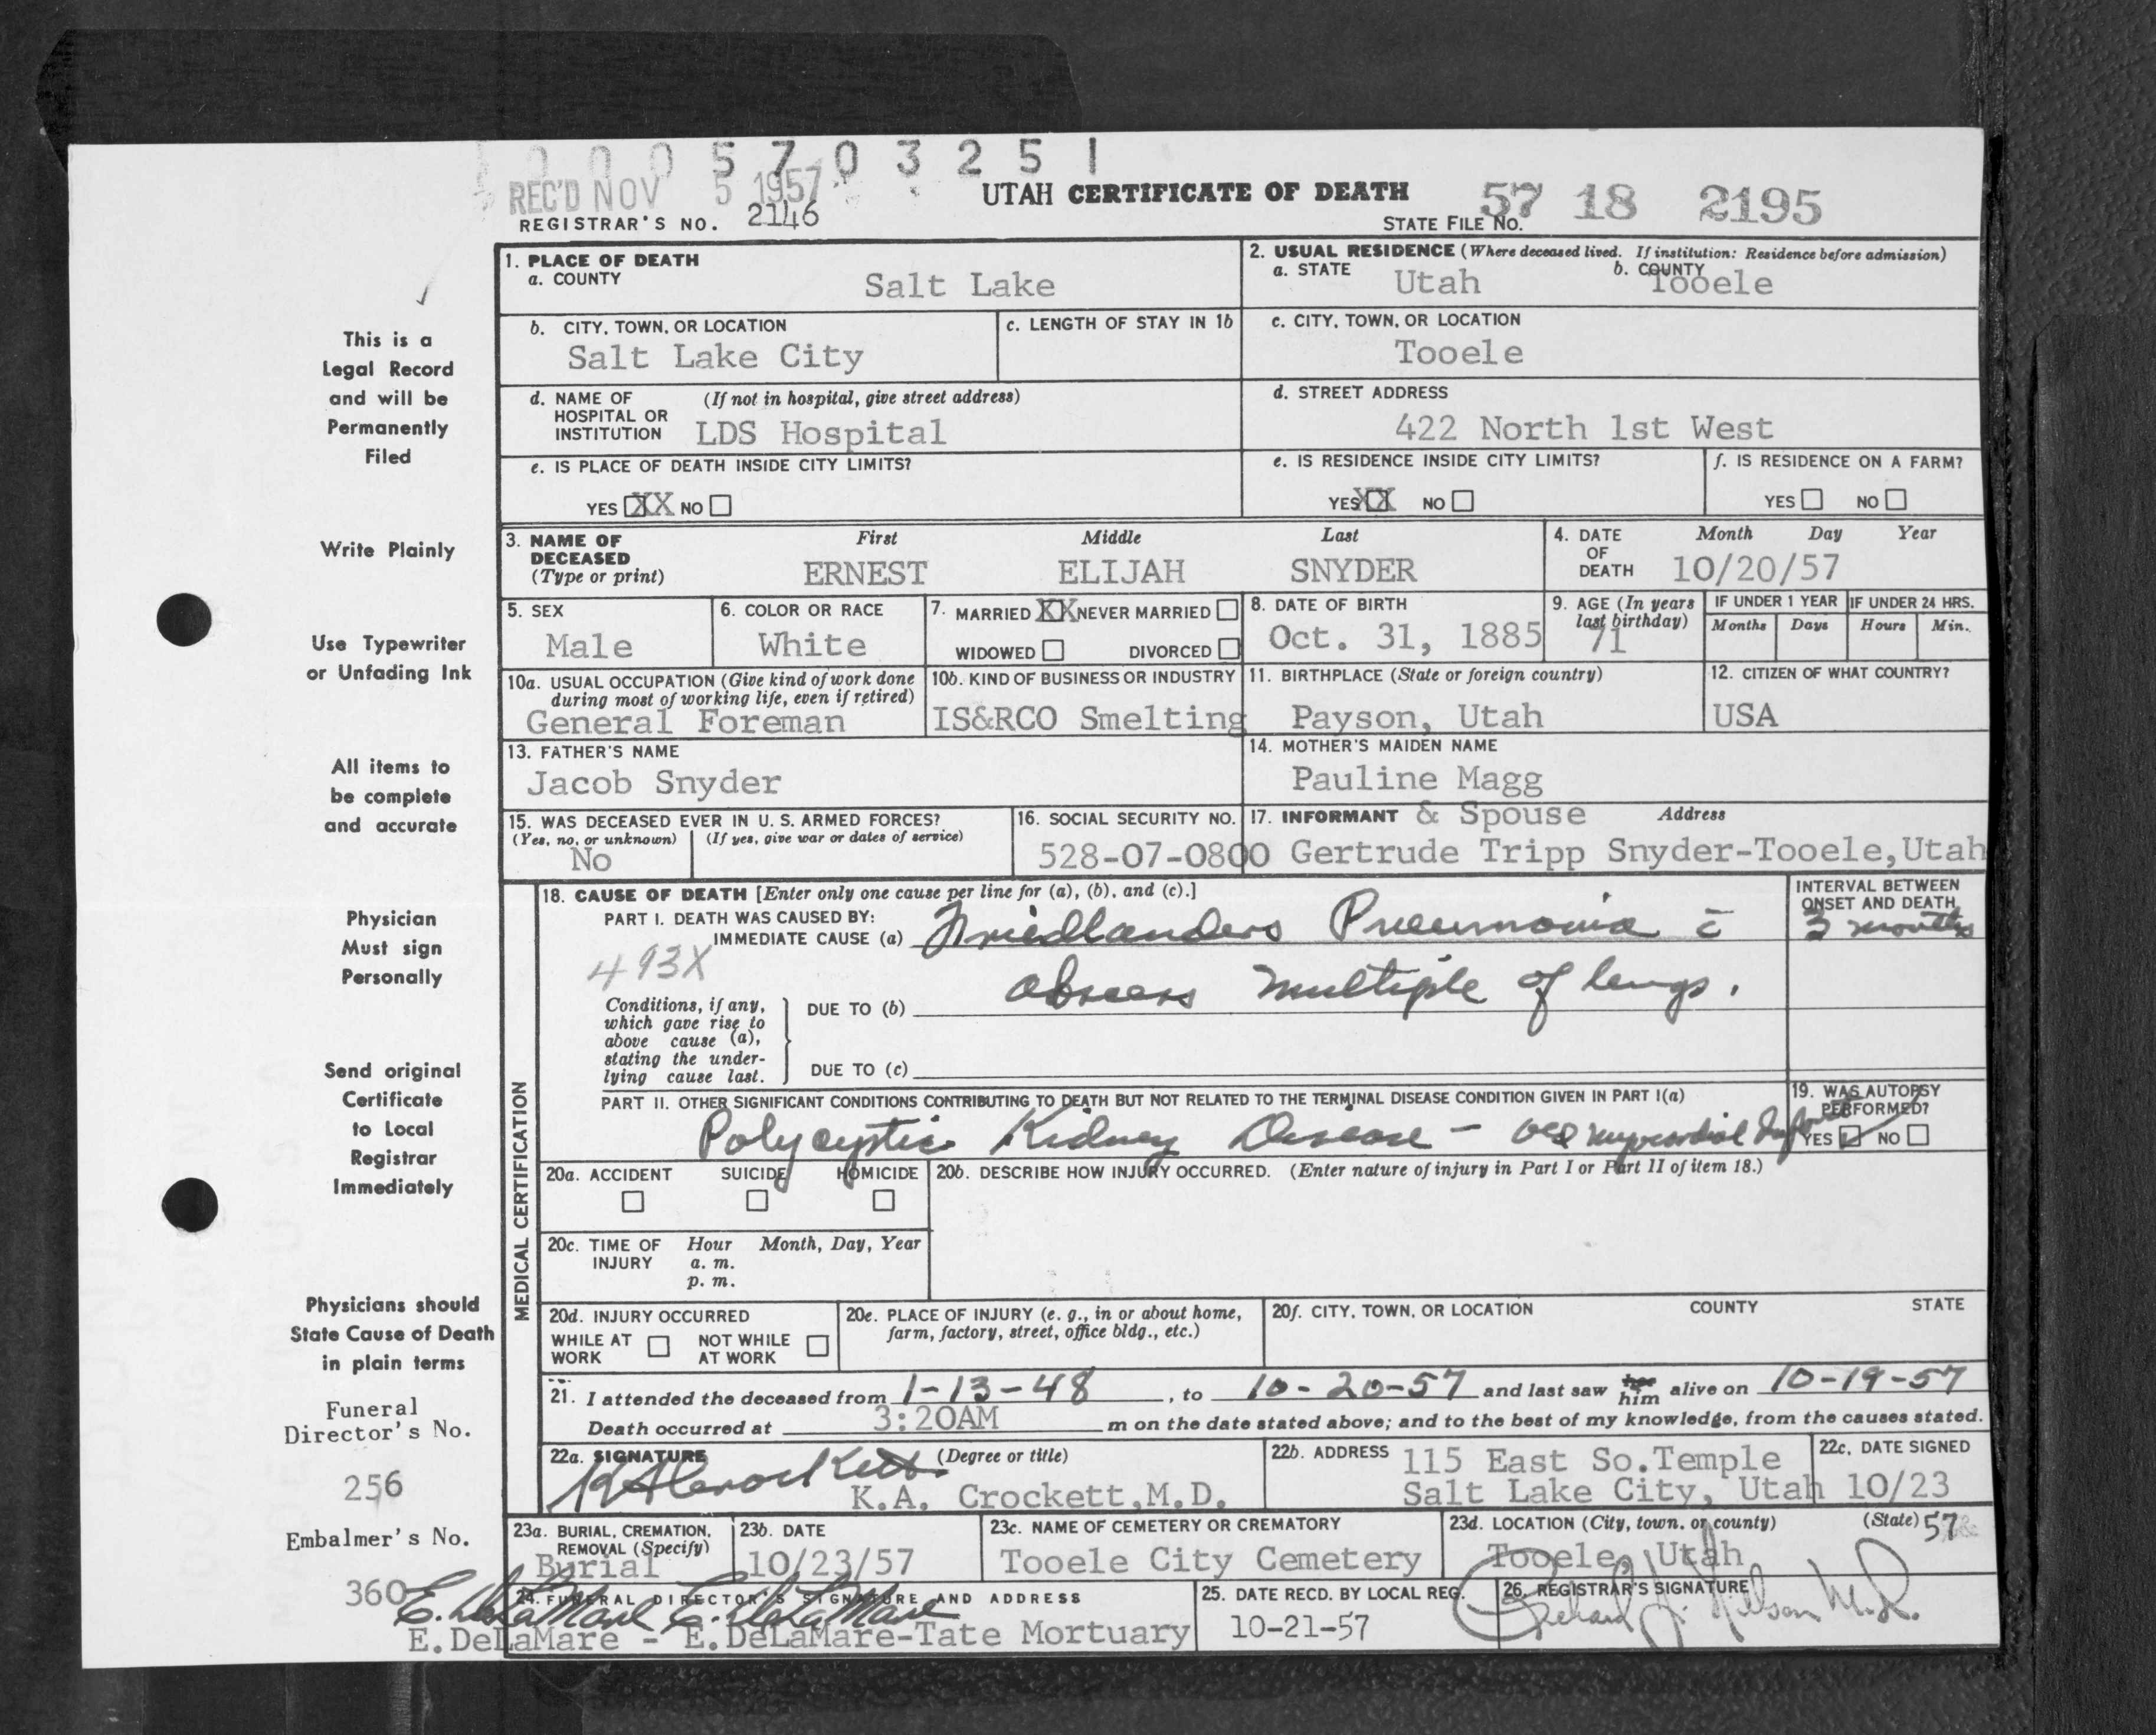 0 0 0 5 7 0 3 2 5 1
REC'D NOV 5 1957
REGISTRAR'S NO. 2146
UTAH CERTIFICATE OF DEATH
STATE FILE NO. 57 18 2195
This is a
Legal Record
and will be
Permanently
Filed
Write Plainly
Use Typewriter
or Unfading Ink
All items to
be complete
and accurate
Physician
Must sign
Personally
Send original
Certificate
to Local
Registrar
Immediately
Physicians should
State Cause of Death
in plain terms
Funeral
Director's No.
256
Embalmer's No.
360
1. PLACE OF DEATH
a. COUNTY
Salt Lake
2. USUAL RESIDENCE (Where deceased lived. If institution: Residence before admission)
a. STATE Utah b. COUNTY Tooele
b. CITY, TOWN, OR LOCATION
Salt Lake City
c. LENGTH OF STAY IN 1b
c. CITY, TOWN, OR LOCATION
Tooele
d. NAME OF (If not in hospital, give street address)
HOSPITAL OR
INSTITUTION LDS Hospital
d. STREET ADDRESS
422 North 1st West
e. IS PLACE OF DEATH INSIDE CITY LIMITS?
YES XX NO
e. IS RESIDENCE INSIDE CITY LIMITS?
YES XX NO
f. IS RESIDENCE ON A FARM?
YES NO
3. NAME OF
DECEASED
(Type or print)
First Middle Last
ERNEST ELIJAH SNYDER
4. DATE
OF
DEATH
Month Day Year
10/20/57
5. SEX
Male
6. COLOR OR RACE
White
7. MARRIED XX NEVER MARRIED
WIDOWED DIVORCED
8. DATE OF BIRTH
Oct. 31, 1885
9. AGE (In years
last birthday)
71
IF UNDER 1 YEAR
Months Days
IF UNDER 24 HRS.
Hours Min.
10a. USUAL OCCUPATION (Give kind of work done
during most of working life, even if retired)
General Foreman
10b. KIND OF BUSINESS OR INDUSTRY
IS&RCO Smelting
11. BIRTHPLACE (State or foreign country)
Payson, Utah
12. CITIZEN OF WHAT COUNTRY?
USA
13. FATHER'S NAME
Jacob Snyder
14. MOTHER'S MAIDEN NAME
Pauline Magg
15. WAS DECEASED EVER IN U. S. ARMED FORCES?
(Yes, no, or unknown) (If yes, give war or dates of service)
No
16. SOCIAL SECURITY NO.
528-07-0800
17. INFORMANT & Spouse Address
Gertrude Tripp Snyder-Tooele,Utah
MEDICAL CERTIFICATION
18. CAUSE OF DEATH [Enter only one cause per line for (a), (b), and (c).]
PART I. DEATH WAS CAUSED BY:
IMMEDIATE CAUSE (a) Friedlanders Pneumonia c̄
493X
INTERVAL BETWEEN
ONSET AND DEATH
3 months
Conditions, if any,
which gave rise to
above cause (a),
stating the under-
lying cause last.
DUE TO (b) abscess multiple of lungs.
DUE TO (c)
PART II. OTHER SIGNIFICANT CONDITIONS CONTRIBUTING TO DEATH BUT NOT RELATED TO THE TERMINAL DISEASE CONDITION GIVEN IN PART I(a)
Polycystic Kidney Disease - old myocardial Infarct
19. WAS AUTOPSY
PERFORMED?
YES NO
20a. ACCIDENT SUICIDE HOMICIDE
20b. DESCRIBE HOW INJURY OCCURRED. (Enter nature of injury in Part I or Part II of item 18.)
20c. TIME OF Hour Month, Day, Year
INJURY a. m.
p. m.
20d. INJURY OCCURRED
WHILE AT WORK NOT WHILE AT WORK
20e. PLACE OF INJURY (e. g., in or about home,
farm, factory, street, office bldg., etc.)
20f. CITY, TOWN, OR LOCATION COUNTY STATE
21. I attended the deceased from 1-13-48, to 10-20-57 and last saw her him alive on 10-19-57
Death occurred at 3:20AM m on the date stated above; and to the best of my knowledge, from the causes stated.
22a. SIGNATURE (Degree or title)
K A Crockett
K.A. Crockett,M.D.
22b. ADDRESS 115 East So.Temple
Salt Lake City, Utah
22c. DATE SIGNED
10/23
57
23a. BURIAL, CREMATION,
REMOVAL (Specify)
Burial
23b. DATE
10/23/57
23c. NAME OF CEMETERY OR CREMATORY
Tooele City Cemetery
23d. LOCATION (City, town, or county) (State)
Tooele, Utah
24. FUNERAL DIRECTOR'S SIGNATURE AND ADDRESS
E. DeLaMare E. DeLaMare
E.DeLaMare - E.DeLaMare-Tate Mortuary
25. DATE RECD. BY LOCAL REG.
10-21-57
26. REGISTRAR'S SIGNATURE